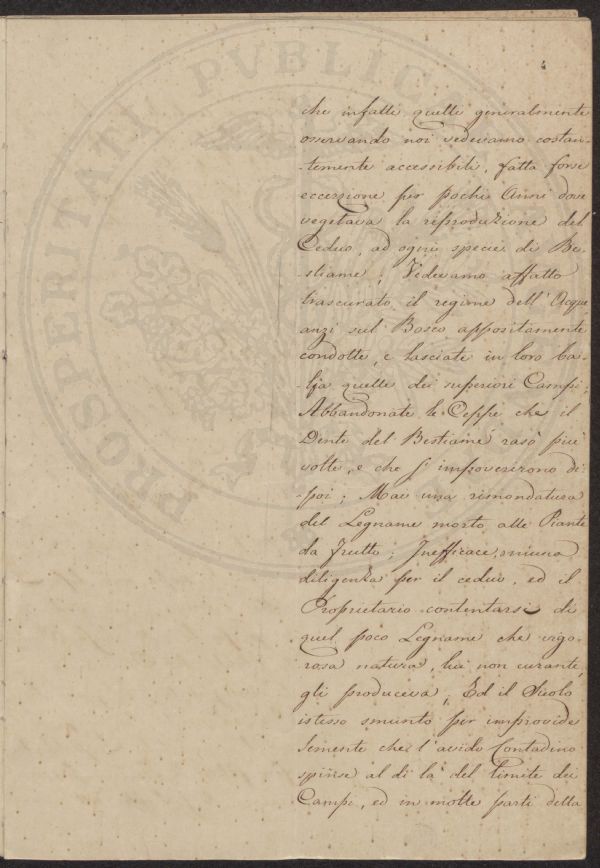 4
che infatti quelle generalmente
osservando noi vedevamo costan-
-temente accessibili, fatta forse
eccezzione per pochi Anni dove
vegetava la riproduzione del
Ceduo, ad ogni specie di Be-
-stiame; Vedevamo affatto
trascurato il regime dell'Acque
anzi sul Bosco appositamente
condotte, e lasciate in loro ba-
-lìa quelle dei superiori Campi;
Abbandonate le Ceppe che il
Dente del Bestiame rasò più
volte, e che s'impoverirono di-
-poi; Mai una rimondatura
del Legname morto alle Piante
da frutto; Inefficace, niuna
diligenza per il ceduo, ed il
Proprietario contentarsi di
quel poco Legname che vigo-
rosa natura, lui non curante,
gli produceva; Ed il Suolo
istesso smunto per improvide
Semente che l'avido Contadino
spinse al di là del limite dei
Campi, ed in molte parti della
PROSPERITATI PVBLICAE